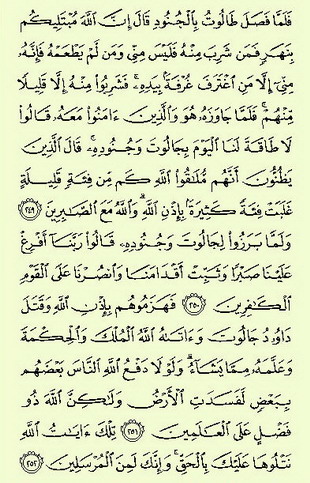 فَلَمَّا فَصَلَ طَالُوتُ بِٱلْجُنُودِ قَالَ إِنَّ ٱللَّهَ مُبْتَلِيكُم
بِنَهَرٍ فَمَن شَرِبَ مِنْهُ فَلَيْسَ مِنِّي وَمَن لَّمْ يَطْعَمْهُ فَإِنَّهُۥ
مِنِّيٓ إِلَّا مَنِ ٱغْتَرَفَ غُرْفَةَۢ بِيَدِهِۦۚ فَشَرِبُوا۟ مِنْهُ إِلَّا قَلِيلًا
مِّنْهُمْۚ فَلَمَّا جَاوَزَهُۥ هُوَ وَٱلَّذِينَ ءَامَنُوا۟ مَعَهُۥ قَالُوا۟
لَا طَاقَةَ لَنَا ٱلْيَوْمَ بِجَالُوتَ وَجُنُودِهِۦۚ قَالَ ٱلَّذِينَ
يَظُنُّونَ أَنَّهُم مُّلَـٰقُوا۟ ٱللَّهِ كَم مِّن فِئَةٍ قَلِيلَةٍ
غَلَبَتْ فِئَةً كَثِيرَةَۢ بِإِذْنِ ٱللَّهِۗ وَٱللَّهُ مَعَ ٱلصَّـٰبِرِينَ ٢٤٩
وَلَمَّا بَرَزُوا۟ لِجَالُوتَ وَجُنُودِهِۦ قَالُوا۟ رَبَّنَآ أَفْرِغْ
عَلَيْنَا صَبْرًا وَثَبِّتْ أَقْدَامَنَا وَٱنصُرْنَا عَلَى ٱلْقَوْمِ
ٱلْكَـٰفِرِينَ ٢٥٠ فَهَزَمُوهُم بِإِذْنِ ٱللَّهِ وَقَتَلَ
دَاوُۥدُ جَالُوتَ وَءَاتَىٰهُ ٱللَّهُ ٱلْمُلْكَ وَٱلْحِكْمَةَ
وَعَلَّمَهُۥ مِمَّا يَشَآءُۗ وَلَوْلَا دَفْعُ ٱللَّهِ ٱلنَّاسَ بَعْضَهُم
بِبَعْضٍ لَّفَسَدَتِ ٱلْأَرْضُ وَلَـٰكِنَّ ٱللَّهَ ذُو
فَضْلٍ عَلَى ٱلْعَـٰلَمِينَ ٢٥١ تِلْكَ ءَايَـٰتُ ٱللَّهِ
نَتْلُوهَا عَلَيْكَ بِٱلْحَقِّۚ وَإِنَّكَ لَمِنَ ٱلْمُرْسَلِينَ ٢٥٢